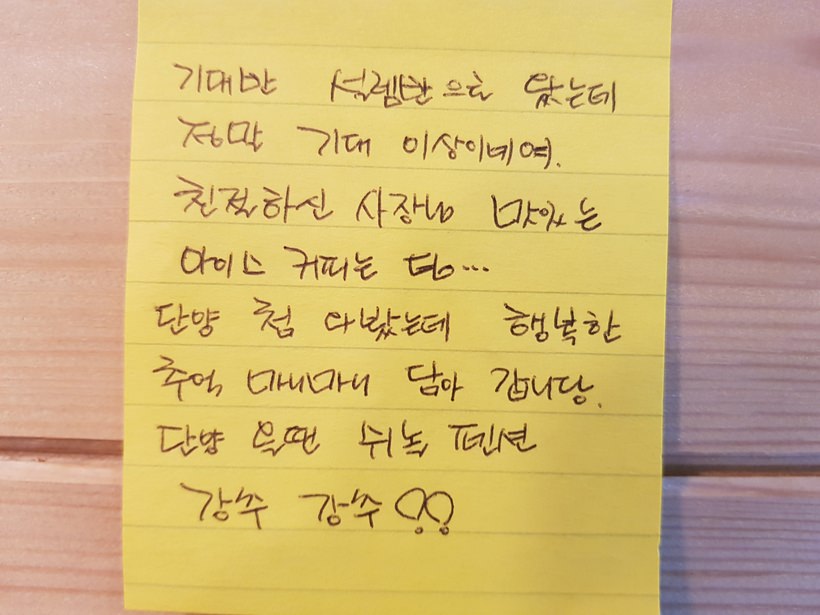 기대반 설렘반으로 왔는데
정말 기대 이상이네여.
친절하신 사장님 맛있는
아이스 커피는 덤...
단양 첨 와봤는데 행복한
추억 마니마니 담아 갑니당.
단양 올땐 쉬녹 펜션
강추 강추 !!